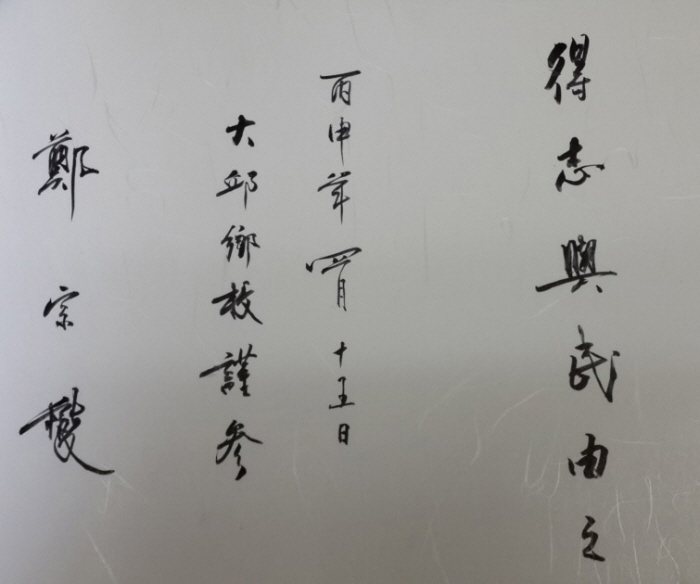 得志與民由之
丙申年 四月 十五日
大邱鄉校謹參
鄭宗燮